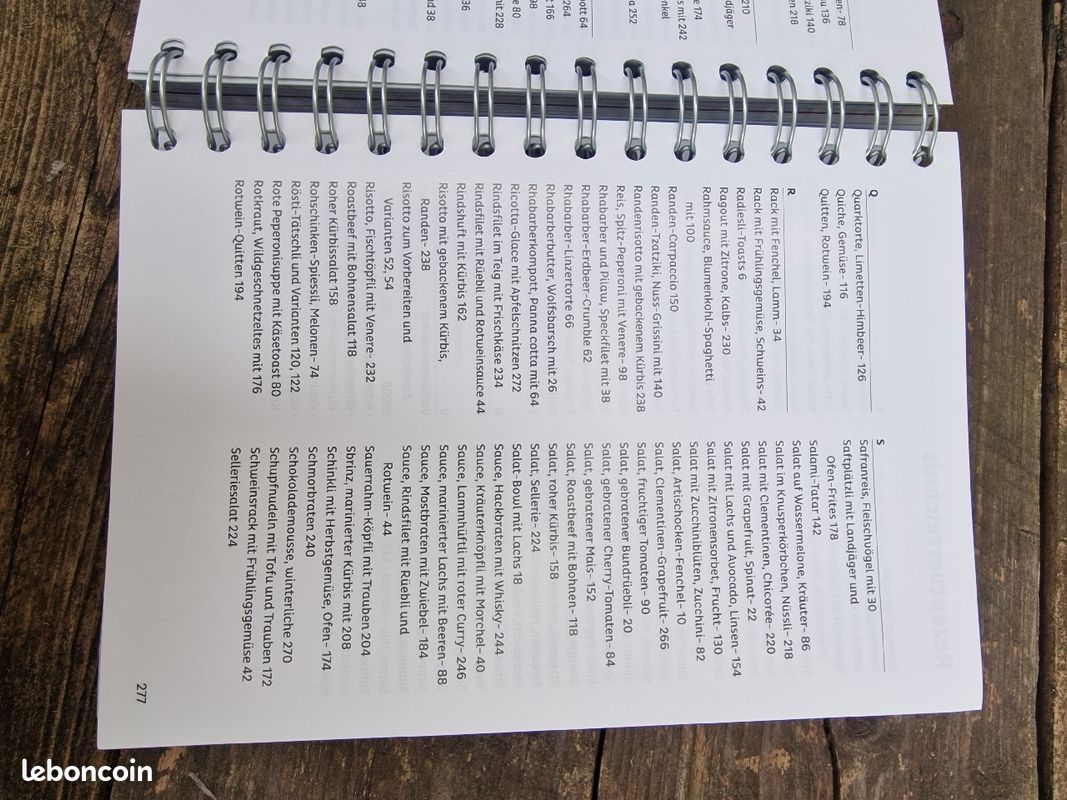 Q
Quarktorte, Limetten-Himbeer- 126
Quiche, Gemüse- 116
Quitten, Rotwein- 194
R
Rack mit Fenchel, Lamm- 34
Rack mit Frühlingsgemüse, Schweins- 42
Radiesli-Toasts 6
Ragout mit Zitrone, Kalbs- 230
Rahmsauce, Blumenkohl-Spaghetti
mit 100
Randen-Carpaccio 150
Randen-Tzatziki, Nuss-Grissini mit 140
Randenrisotto mit gebackenem Kürbis 238
Reis, Spitz-Peperoni mit Venere- 98
Rhabarber und Pilaw, Speckfilet mit 38
Rhabarber-Erdbeer-Crumble 62
Rhabarber-Linzertorte 66
Rhabarberbutter, Wolfsbarsch mit 26
Rhabarberkompott, Panna cotta mit 64
Ricotta-Glace mit Apfelschnitzen 272
Rindsfilet im Teig mit Frischkäse 234
Rindsfilet mit Rüebli und Rotweinsauce 44
Rindshuft mit Kürbis 162
Risotto mit gebackenem Kürbis,
Randen- 238
Risotto zum Vorbereiten und
Varianten 52, 54
Risotto, Fischtöpfli mit Venere- 232
Roastbeef mit Bohnensalat 118
Roher Kürbissalat 158
Rohschinken-Spiessli, Melonen- 74
Rösti-Tätschli und Varianten 120, 122
Rote Peperonisuppe mit Käsetoast 80
Rotkraut, Wildgeschnetzeltes mit 176
Rotwein-Quitten 194
S
Safranreis, Fleischvögel mit 30
Saftplätzli mit Landjäger und
Ofen-Frites 178
Salami-Tatar 142
Salat auf Wassermelone, Kräuter- 86
Salat im Knusperkörbchen, Nüssli- 218
Salat mit Clementinen, Chicorée- 220
Salat mit Grapefruit, Spinat- 22
Salat mit Lachs und Avocado, Linsen- 154
Salat mit Zitronensorbet, Frucht- 130
Salat mit Zucchiniblüten, Zucchini- 82
Salat, Artischocken-Fenchel- 10
Salat, Clementinen-Grapefruit- 266
Salat, fruchtiger Tomaten- 90
Salat, gebratener Bundrüebli- 20
Salat, gebratener Cherry-Tomaten- 84
Salat, gebratener Mais- 152
Salat, Roastbeef mit Bohnen- 118
Salat, roher Kürbis- 158
Salat, Sellerie- 224
Salat-Bowl mit Lachs 18
Sauce, Hackbraten mit Whisky- 244
Sauce, Kräuterknöpfli mit Morchel- 40
Sauce, Lammhüftli mit roter Curry- 246
Sauce, marinierter Lachs mit Beeren- 88
Sauce, Mostbraten mit Zwiebel- 184
Sauce, Rindsfilet mit Rüebli und
Rotwein- 44
Sauerrahm-Köpfli mit Trauben 204
Sbrinz, marinierter Kürbis mit 208
Schinkli mit Herbstgemüse, Ofen- 174
Schmorbraten 240
Schokolademousse, winterliche 270
Schupfnudeln mit Tofu und Trauben 172
Schweinsrack mit Frühlingsgemüse 42
Selleriesalat 224
277
leboncoin